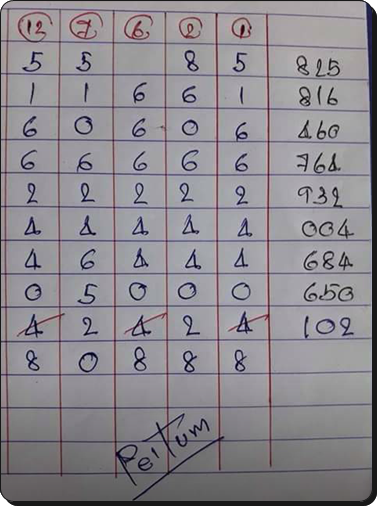 12 7 6 2 1
5 5 8 5 825
1 1 6 6 1 816
6 0 6 0 6 460
6 6 6 6 6 764
2 2 2 2 2 932
4 4 4 4 4 004
4 6 4 4 4 684
0 5 0 0 0 650
4 2 4 2 4 102
8 0 8 8 8